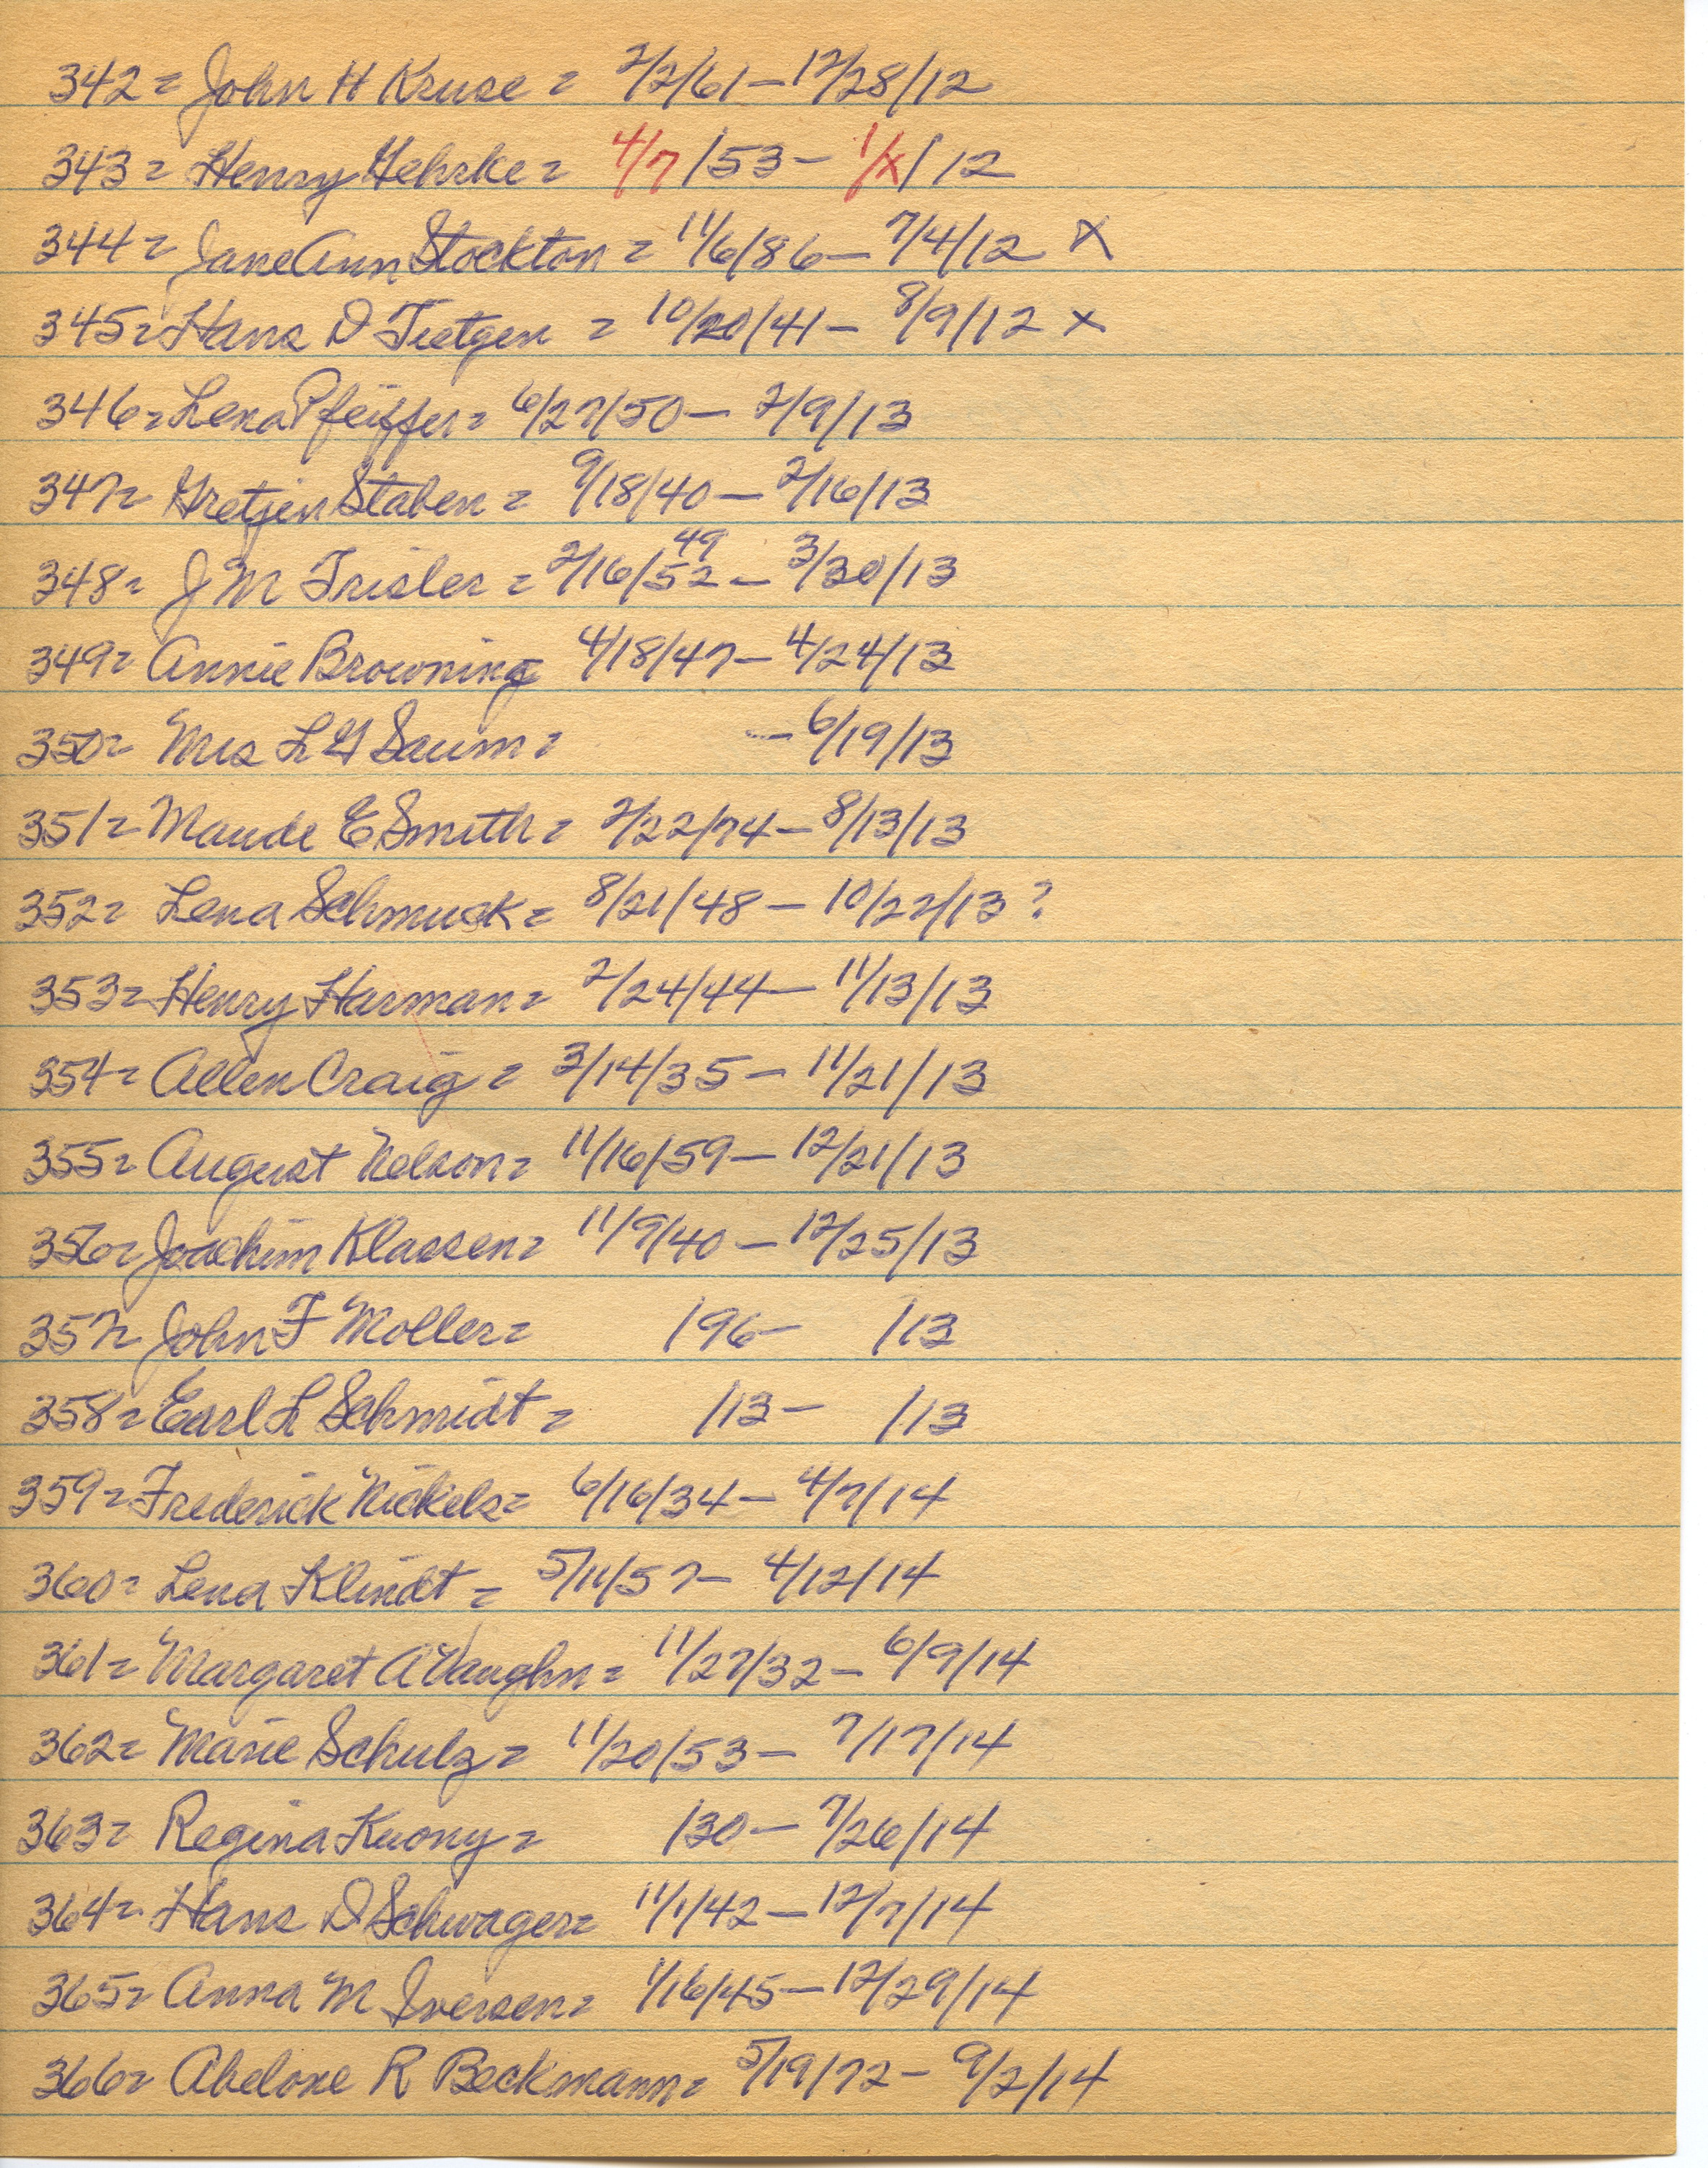 342= John H Kruse = 2/2/61 - 12/28/12
343= Henry Gehrke = 4/7/53 - 1/X/12
344= Jane Ann Stockton = 11/6/86 - 7/4/12 X
345= Hans D Tietgen = 10/20/41 - 8/9/12 X
346= Lena Pfeiffer = 6/27/50 - 2/9/13
347= Gretjen Staben = 9/18/40 - 2/16/13
49
348= J M Trisler = 2/16/52 - 3/30/13
349= Annie Browning 4/18/47 - 4/24/13
350= Mrs L G Saum = - 6/19/13
351= Maude E Smith = 2/22/74 - 8/13/13
352= Lena Schmuck = 8/21/48 - 10/22/13 ?
353= Henry Harman = 2/24/44 - 11/13/13
354= Allen Craig = 3/14/35 - 11/21/13
355= August Nelson = 11/16/59 - 12/21/13
356= Joachim Klassen = 11/9/40 - 12/25/13
357= John F Moller = /96 - /13
358= Earl L Schmidt = /13 - /13
359= Frederick Nickels = 6/16/34 - 4/7/14
360= Lena Klindt = 5/11/57 - 4/12/14
361= Margaret A Vaughn = 11/27/32 - 6/9/14
362= Marie Schulz = 11/20/53 - 7/17/14
363= Regina Kuony = /30 - 7/26/14
364= Hans D Schwager = 11/1/42 - 12/7/14
365= Anna M Iversen = 1/16/45 - 12/29/14
366= Abelone R Beckmann = 5/19/72 - 9/2/14